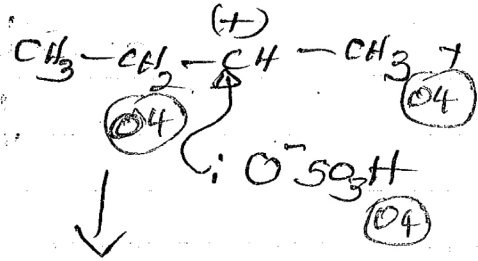 (+)
CH3 - CH2 - CH - CH3 +
04 04
: O⁻ SO3H
04